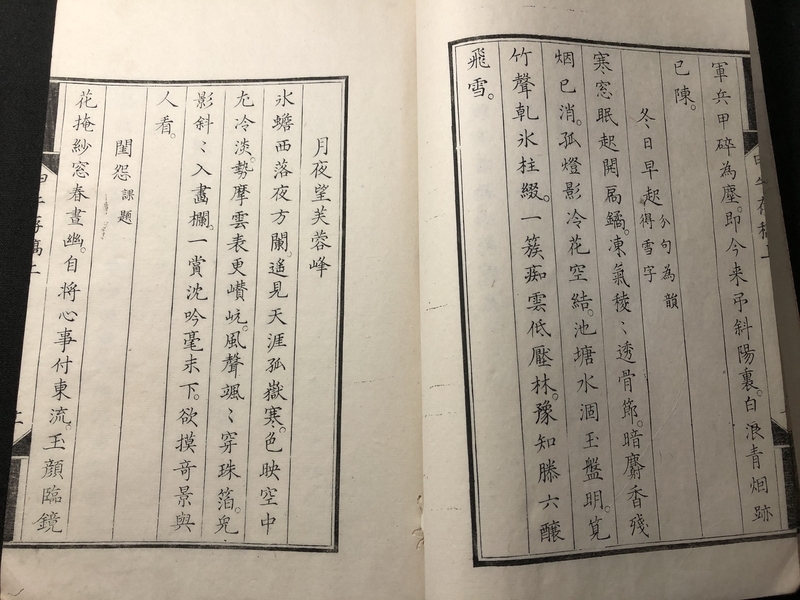 軍兵甲碎為塵。即今来弔斜陽裏。白浪青烟跡
已陳。
冬日早起 分句為韻得雪字
寒窓眠起開扃鐍。凍氣稜〻透骨節。暗麝香殘
烟已消。孤燈影冷花空結。池塘水涸玉盤明。筧
竹聲乾氷柱綴。一簇痴雲低壓林。豫知滕六釀
飛雪。
月夜望芙蓉峰
氷蟾西落夜方闌。遙見天涯孤嶽寒。色映空中
尤冷淡。勢摩雲表更巑岏。風聲颯〻穿珠箔。兎
影斜〻入畵欄。一賞沈吟毫未下。欲摸奇景與
人看。
閨怨 課題
花掩紗窓春晝幽。自將心事付東流。玉顔臨鏡